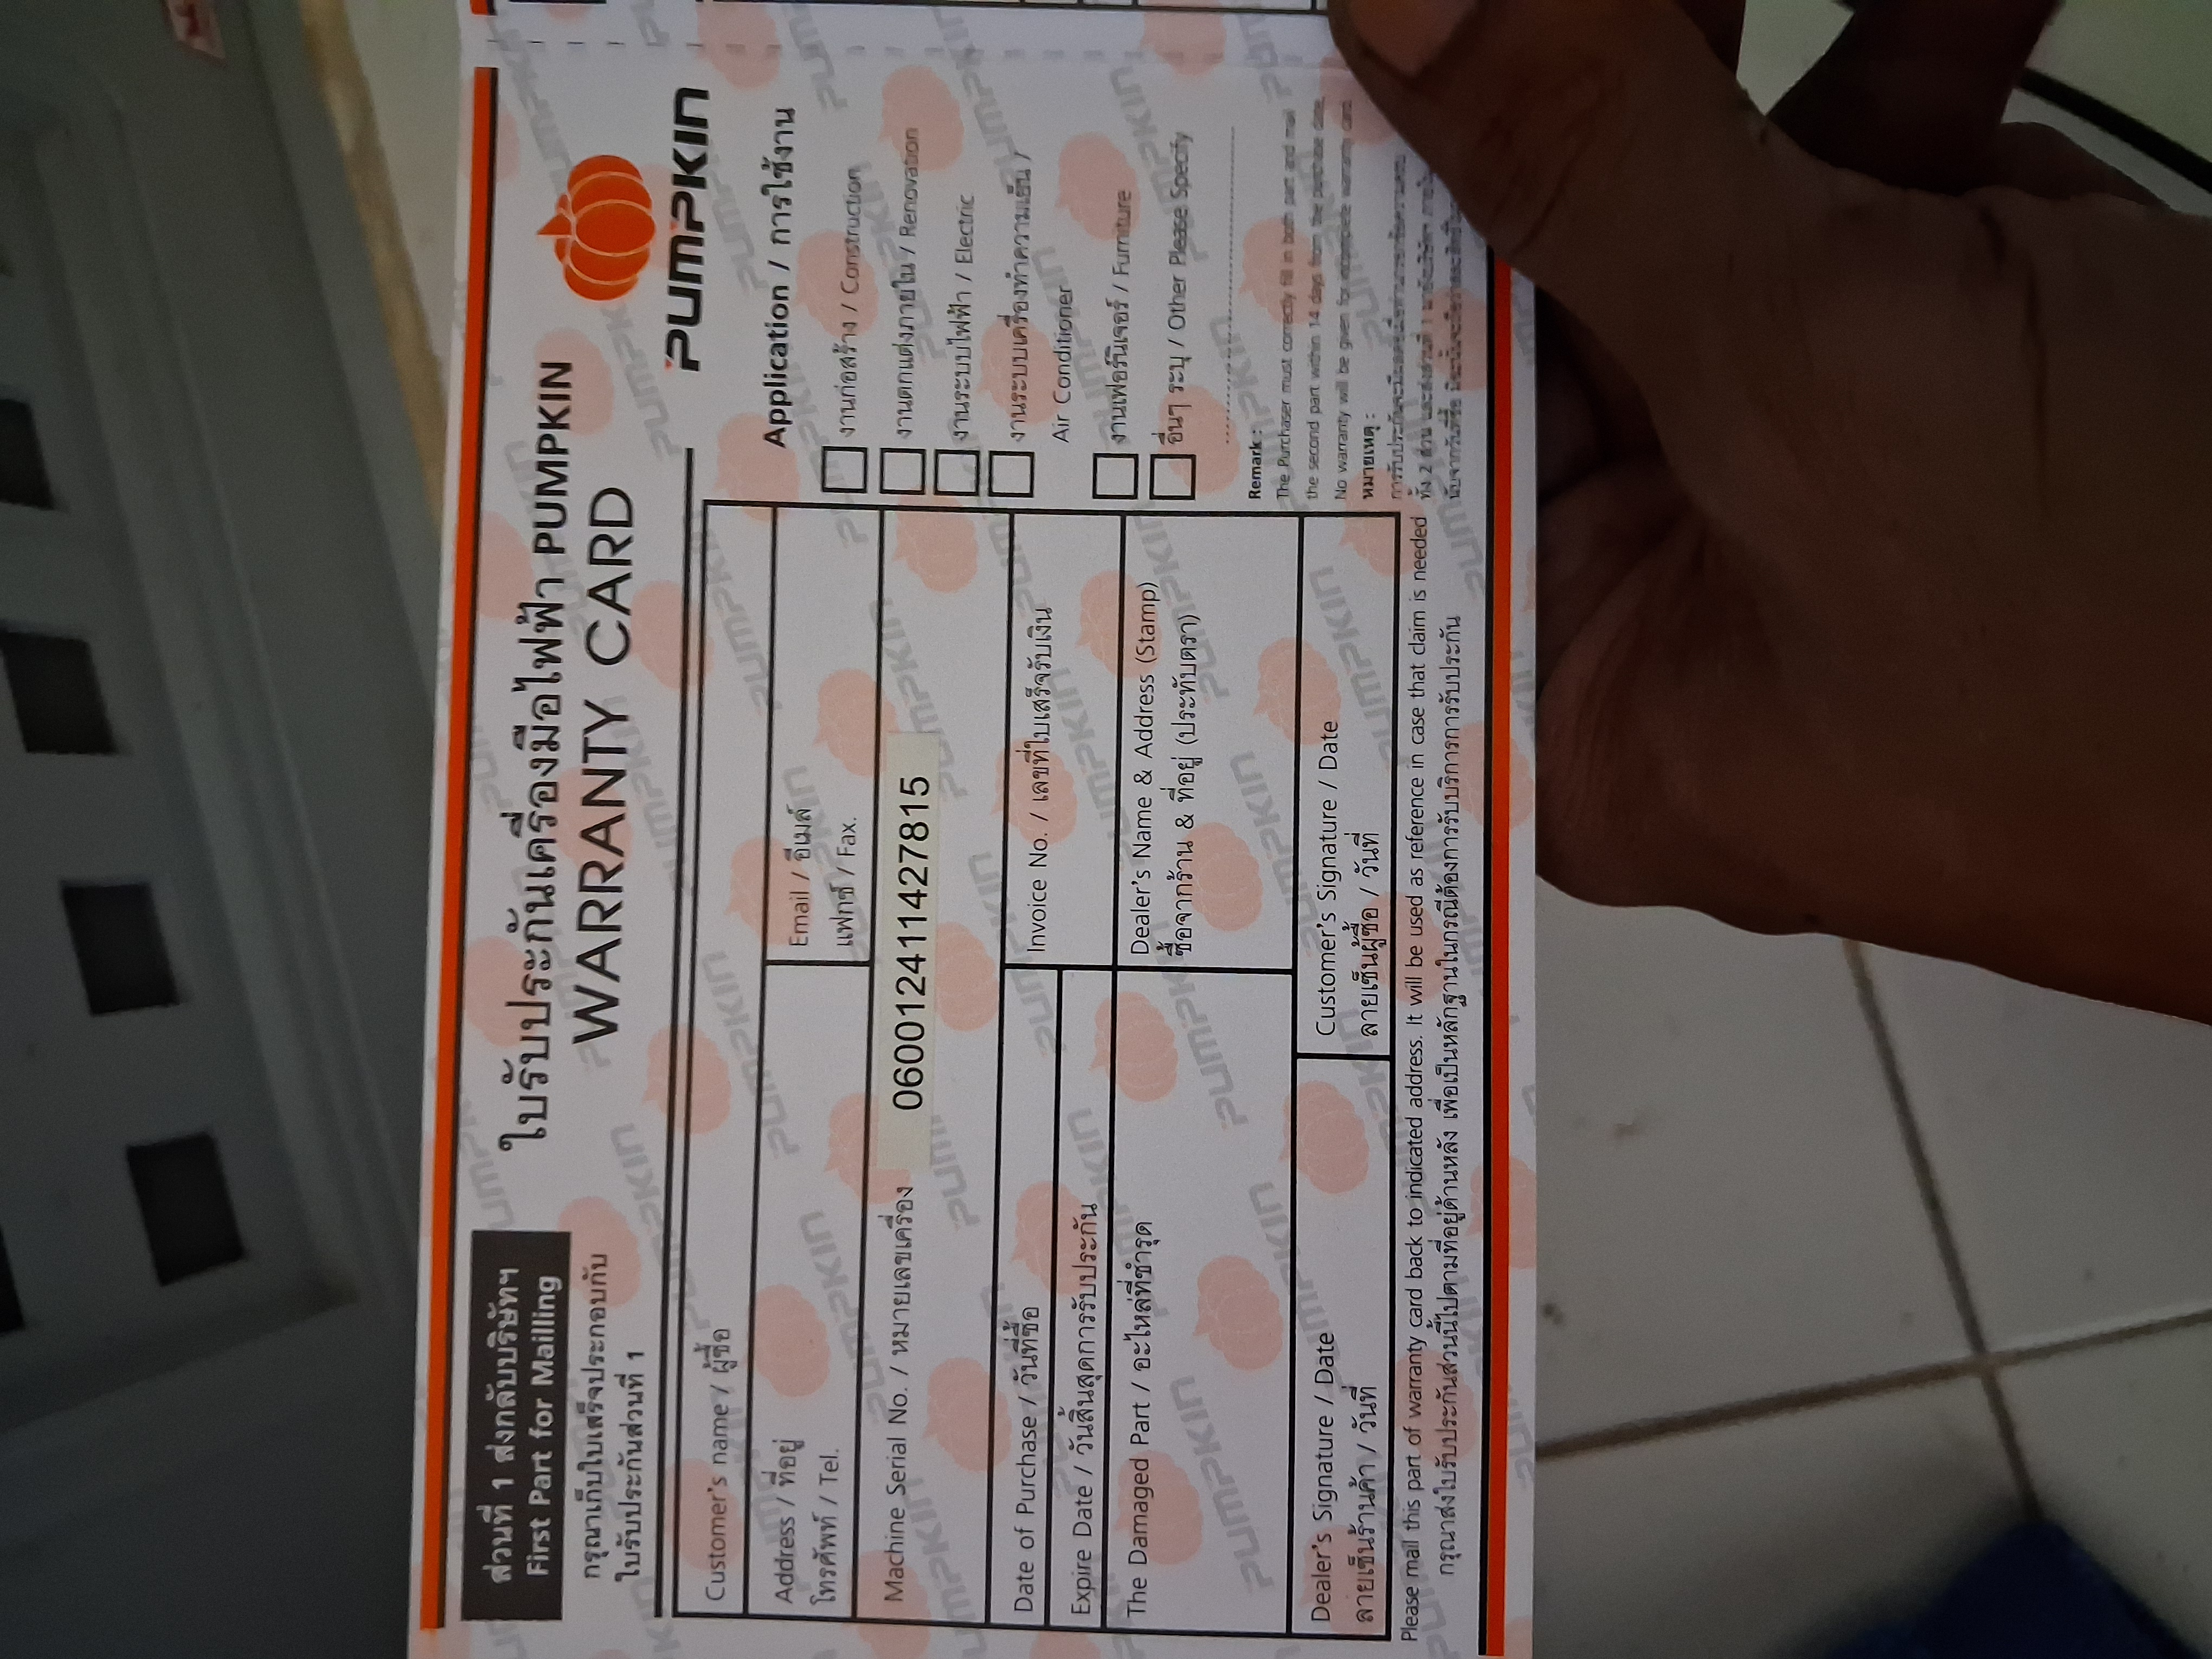 ส่วนที่ 1 ส่งกลับบริษัทฯ
First Part for Mailling
กรุณาเก็บใบเสร็จประกอบกับ
ใบรับประกันส่วนที่ 1
ใบรับประกันเครื่องมือไฟฟ้า PUMPKIN
WARRANTY CARD
PUMPKIN
Customer's name / ผู้ซื้อ
Address / ที่อยู่
โทรศัพท์ / Tel.
Email / อีเมล์
แฟกซ์ / Fax.
Machine Serial No. / หมายเลขเครื่อง 060012411427815
Date of Purchase / วันที่ซื้อ
Invoice No. / เลขที่ใบเสร็จรับเงิน
Expire Date / วันสิ้นสุดการรับประกัน
The Damaged Part / อะไหล่ที่ชำรุด
Dealer's Name & Address (Stamp)
ซื้อจากร้าน & ที่อยู่ (ประทับตรา)
Dealer's Signature / Date
ลายเซ็นร้านค้า / วันที่
Customer's Signature / Date
ลายเซ็นผู้ซื้อ / วันที่
Application / การใช้งาน
งานก่อสร้าง / Construction
งานตกแต่งภายใน / Renovation
งานระบบไฟฟ้า / Electric
งานระบบเครื่องทำความเย็น /
Air Conditioner
งานเฟอร์นิเจอร์ / Furniture
อื่นๆ ระบุ / Other Please Specify
Remark :
The Purchaser must correctly fill in both part and mail
the second part within 14 days from the purchase date.
No warranty will be given for incomplete warranty card.
หมายเหตุ :
ทั้ง 2 ส่วน และส่งส่วนที่ 1
นับจากวันที่ซื้อ
Please mail this part of warranty card back to indicated address. It will be used as reference in case that claim is needed
กรุณาส่งใบรับประกันส่วนนี้ไปตามที่อยู่ด้านหลัง เพื่อเป็นหลักฐานในกรณีต้องการรับบริการการรับประกัน